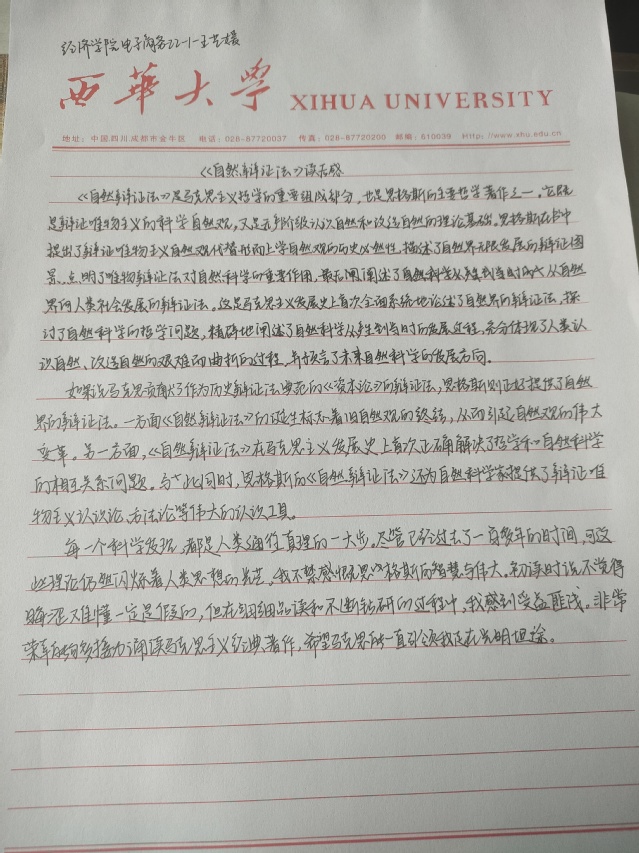 经济学院电子商务22-1-王艺媛
西華大學 XIHUA UNIVERSITY
地址：中国四川成都市金牛区 电话：028-87720037 传真：028-87720200 邮编：610039 Http://www.xhu.edu.cn
《自然辩证法》读后感
《自然辩证法》是马克思主义哲学的重要组成部分，也是恩格斯的主要哲学著作之一。它既
是辩证唯物主义的科学自然观，又是无产阶级认识自然和改造自然的理论基础。恩格斯在书中
提出了辩证唯物主义自然观代替形而上学自然观的历史必然性，描述了自然界无限发展的辩证图
景，点明了唯物辩证法对自然科学的重要作用，最后阐述了自然科学从其到当时时代从自然
界向人类社会发展的辩证法，这是马克思主义发展史上首次全面系统地论述了自然界的辩证法，探
讨了自然科学的哲学问题，精辟地阐述了自然科学从产生到当时的发展过程，充分体现了人类认
识自然、改造自然的艰难而曲折的过程，并预言了未来自然科学的发展方向。
如果说马克思贡献了作为历史辩证法典范的《资本论》的辩证法，恩格斯则正好提供了自然
界的辩证法。一方面《自然辩证法》的诞生标志着旧自然观的终结，从而引起自然观的伟大
变革。另一方面，《自然辩证法》在马克思主义发展史上首次正确解决了哲学和自然科学
的相互关系问题。与此同时，恩格斯的《自然辩证法》还为自然科学家提供了辩证唯
物主义认识论、方法论等伟大的认识工具。
每一个科学发现，都是人类通往真理的一大步。尽管已经过去了一百多年的时间，可这
些理论仍然闪烁着人类思想的光芒。我不禁感慨恩格斯的智慧与伟大。初读时说不觉得
晦涩难懂一定是假的，但在细细品读和不断钻研的过程中，我感到受益匪浅。非常
荣幸能够接力诵读马克思主义经典著作，希望马克思能一直引领我走在光明坦途。